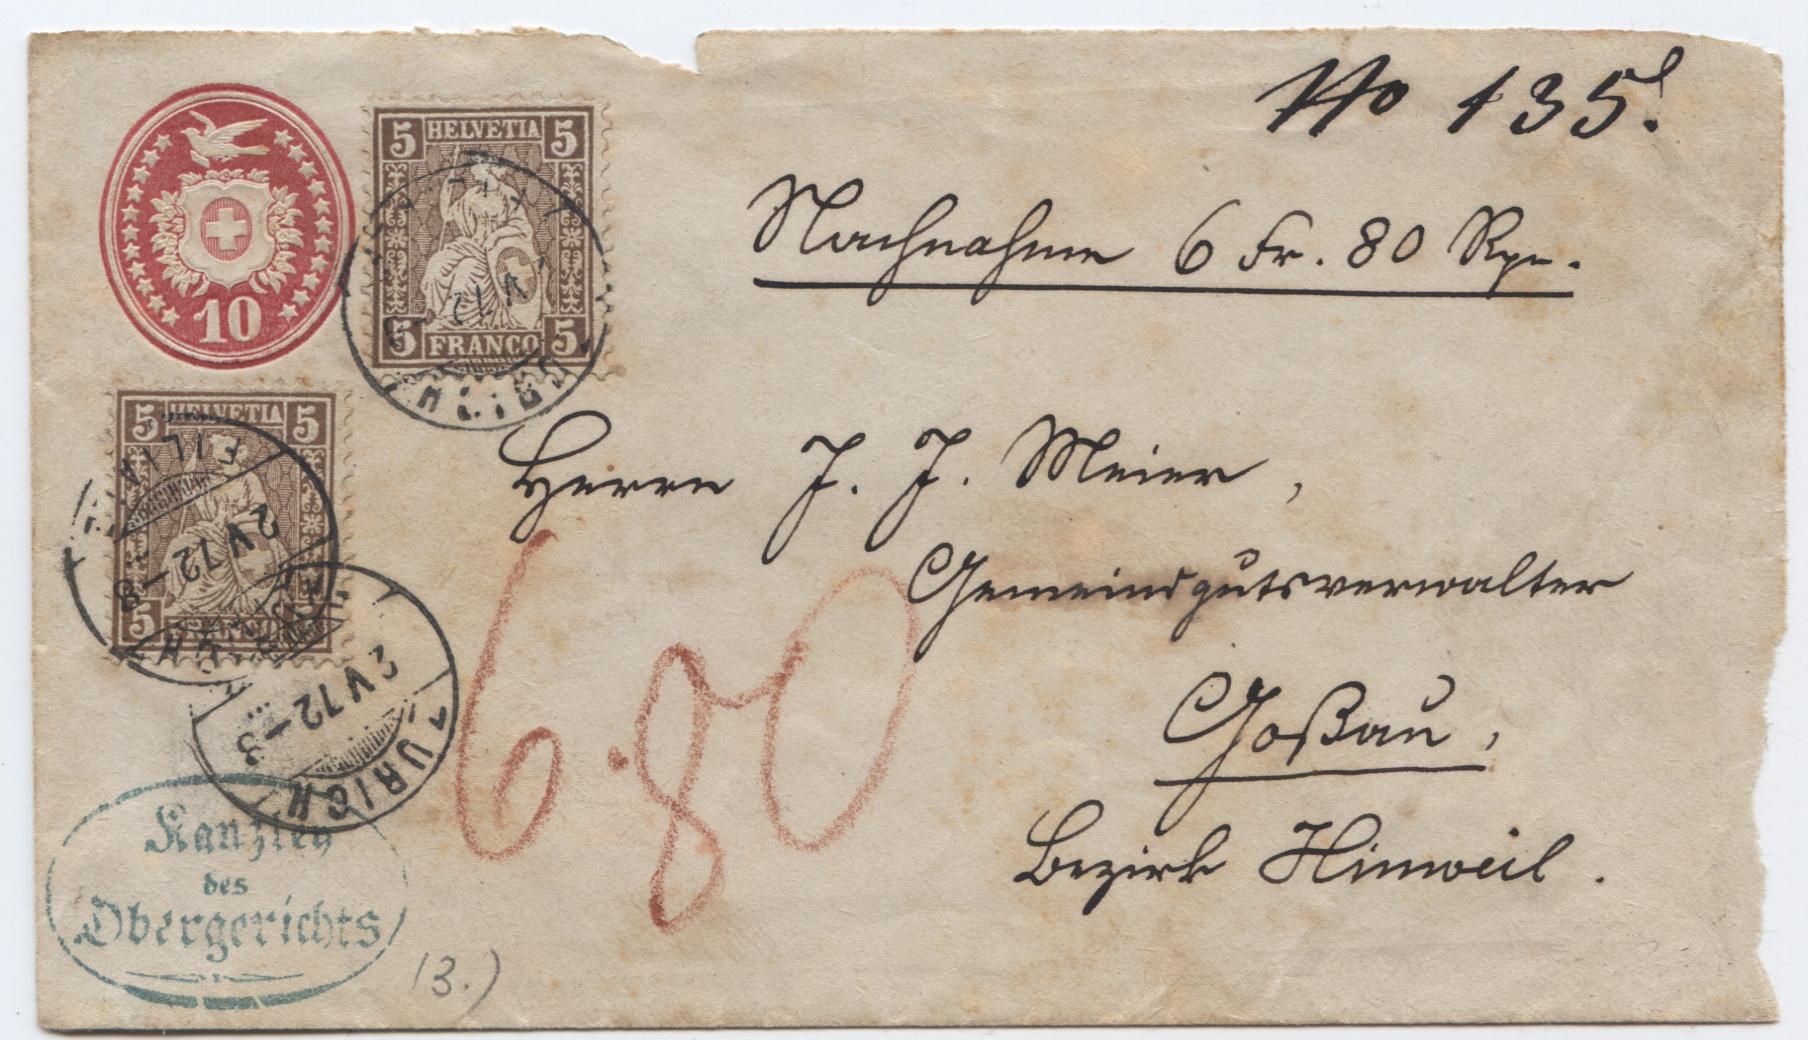 No 135.
Nachnahme 6 Fr. 80 Rpn.
10
5 HELVETIA 5
5 FRANCO 5
5 HELVETIA 5
5
Herrn J. J. Meier,
Gemeindgutsverwalter
Goßau,
Bezirk Hinweil.
6.80
FILIA
2 V 72 – 8
2 V 72 – 3
ZÜRICH
V 72
Kanzley
des
Obergerichts
13.)